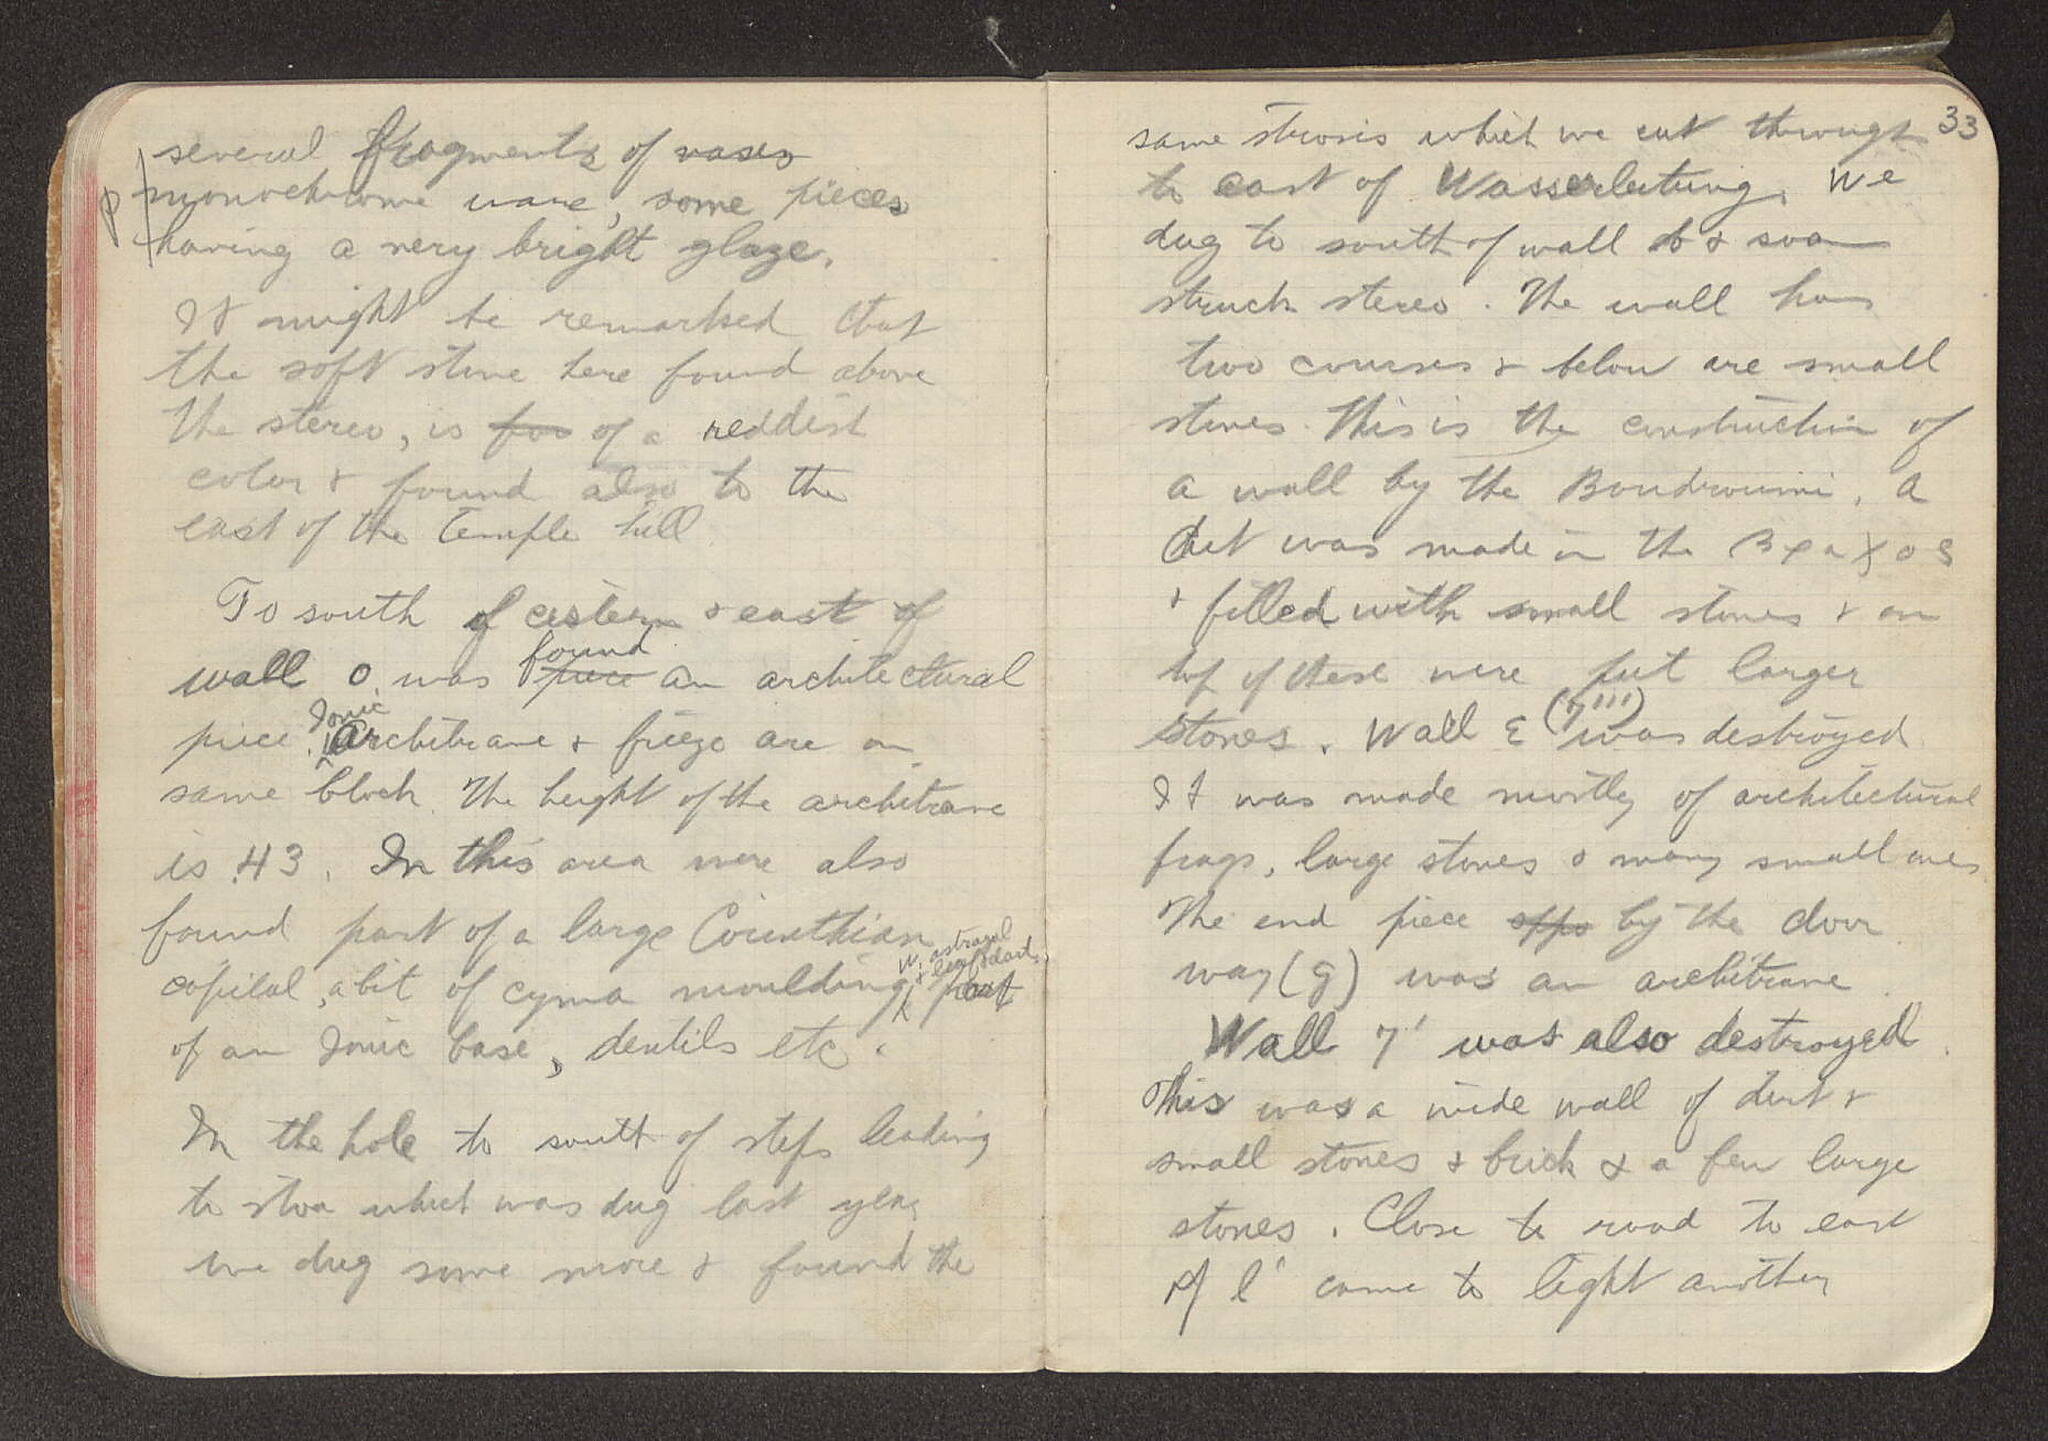 several fragments of vases
monochrome ware, some pieces
having a very bright glaze.
It might be remarked that
the soft stone here found above
the stereo, is of a reddish
color & found also to the
east of the temple hill
To south of cistern & east of
wall o. was found piece an architectural
piece. Ionic Architrave & frieze are on
same block. The height of the architrave
is .43. In this area were also
found part of a large Corinthian
capital, a bit of cyma moulding w. astragal & leaf & dart, part
of an Ionic base, dentils etc.
In the hole to south of steps leading
to stoa which was dug last year
we dug some more & found the
33
same strosis which we cut through
to east of Wasserleitung. We
dug to south of wall & soon
struck stereo. The wall has
two courses & below are small
stones. This is the construction of
a wall by the Boudroumi. A
cut was made in the Βραχος
& filled with small stones & on
top of these were put larger
stones. Wall ε (7''') was destroyed
It was made mostly of architectural
frags, large stones & many small ones
The end piece oppo by the door
way (g) was an architrave.
Wall 7' was also destroyed.
This was a wide wall of dirt &
small stones & brick & a few large
stones. Close to road to east
of l' came to light another